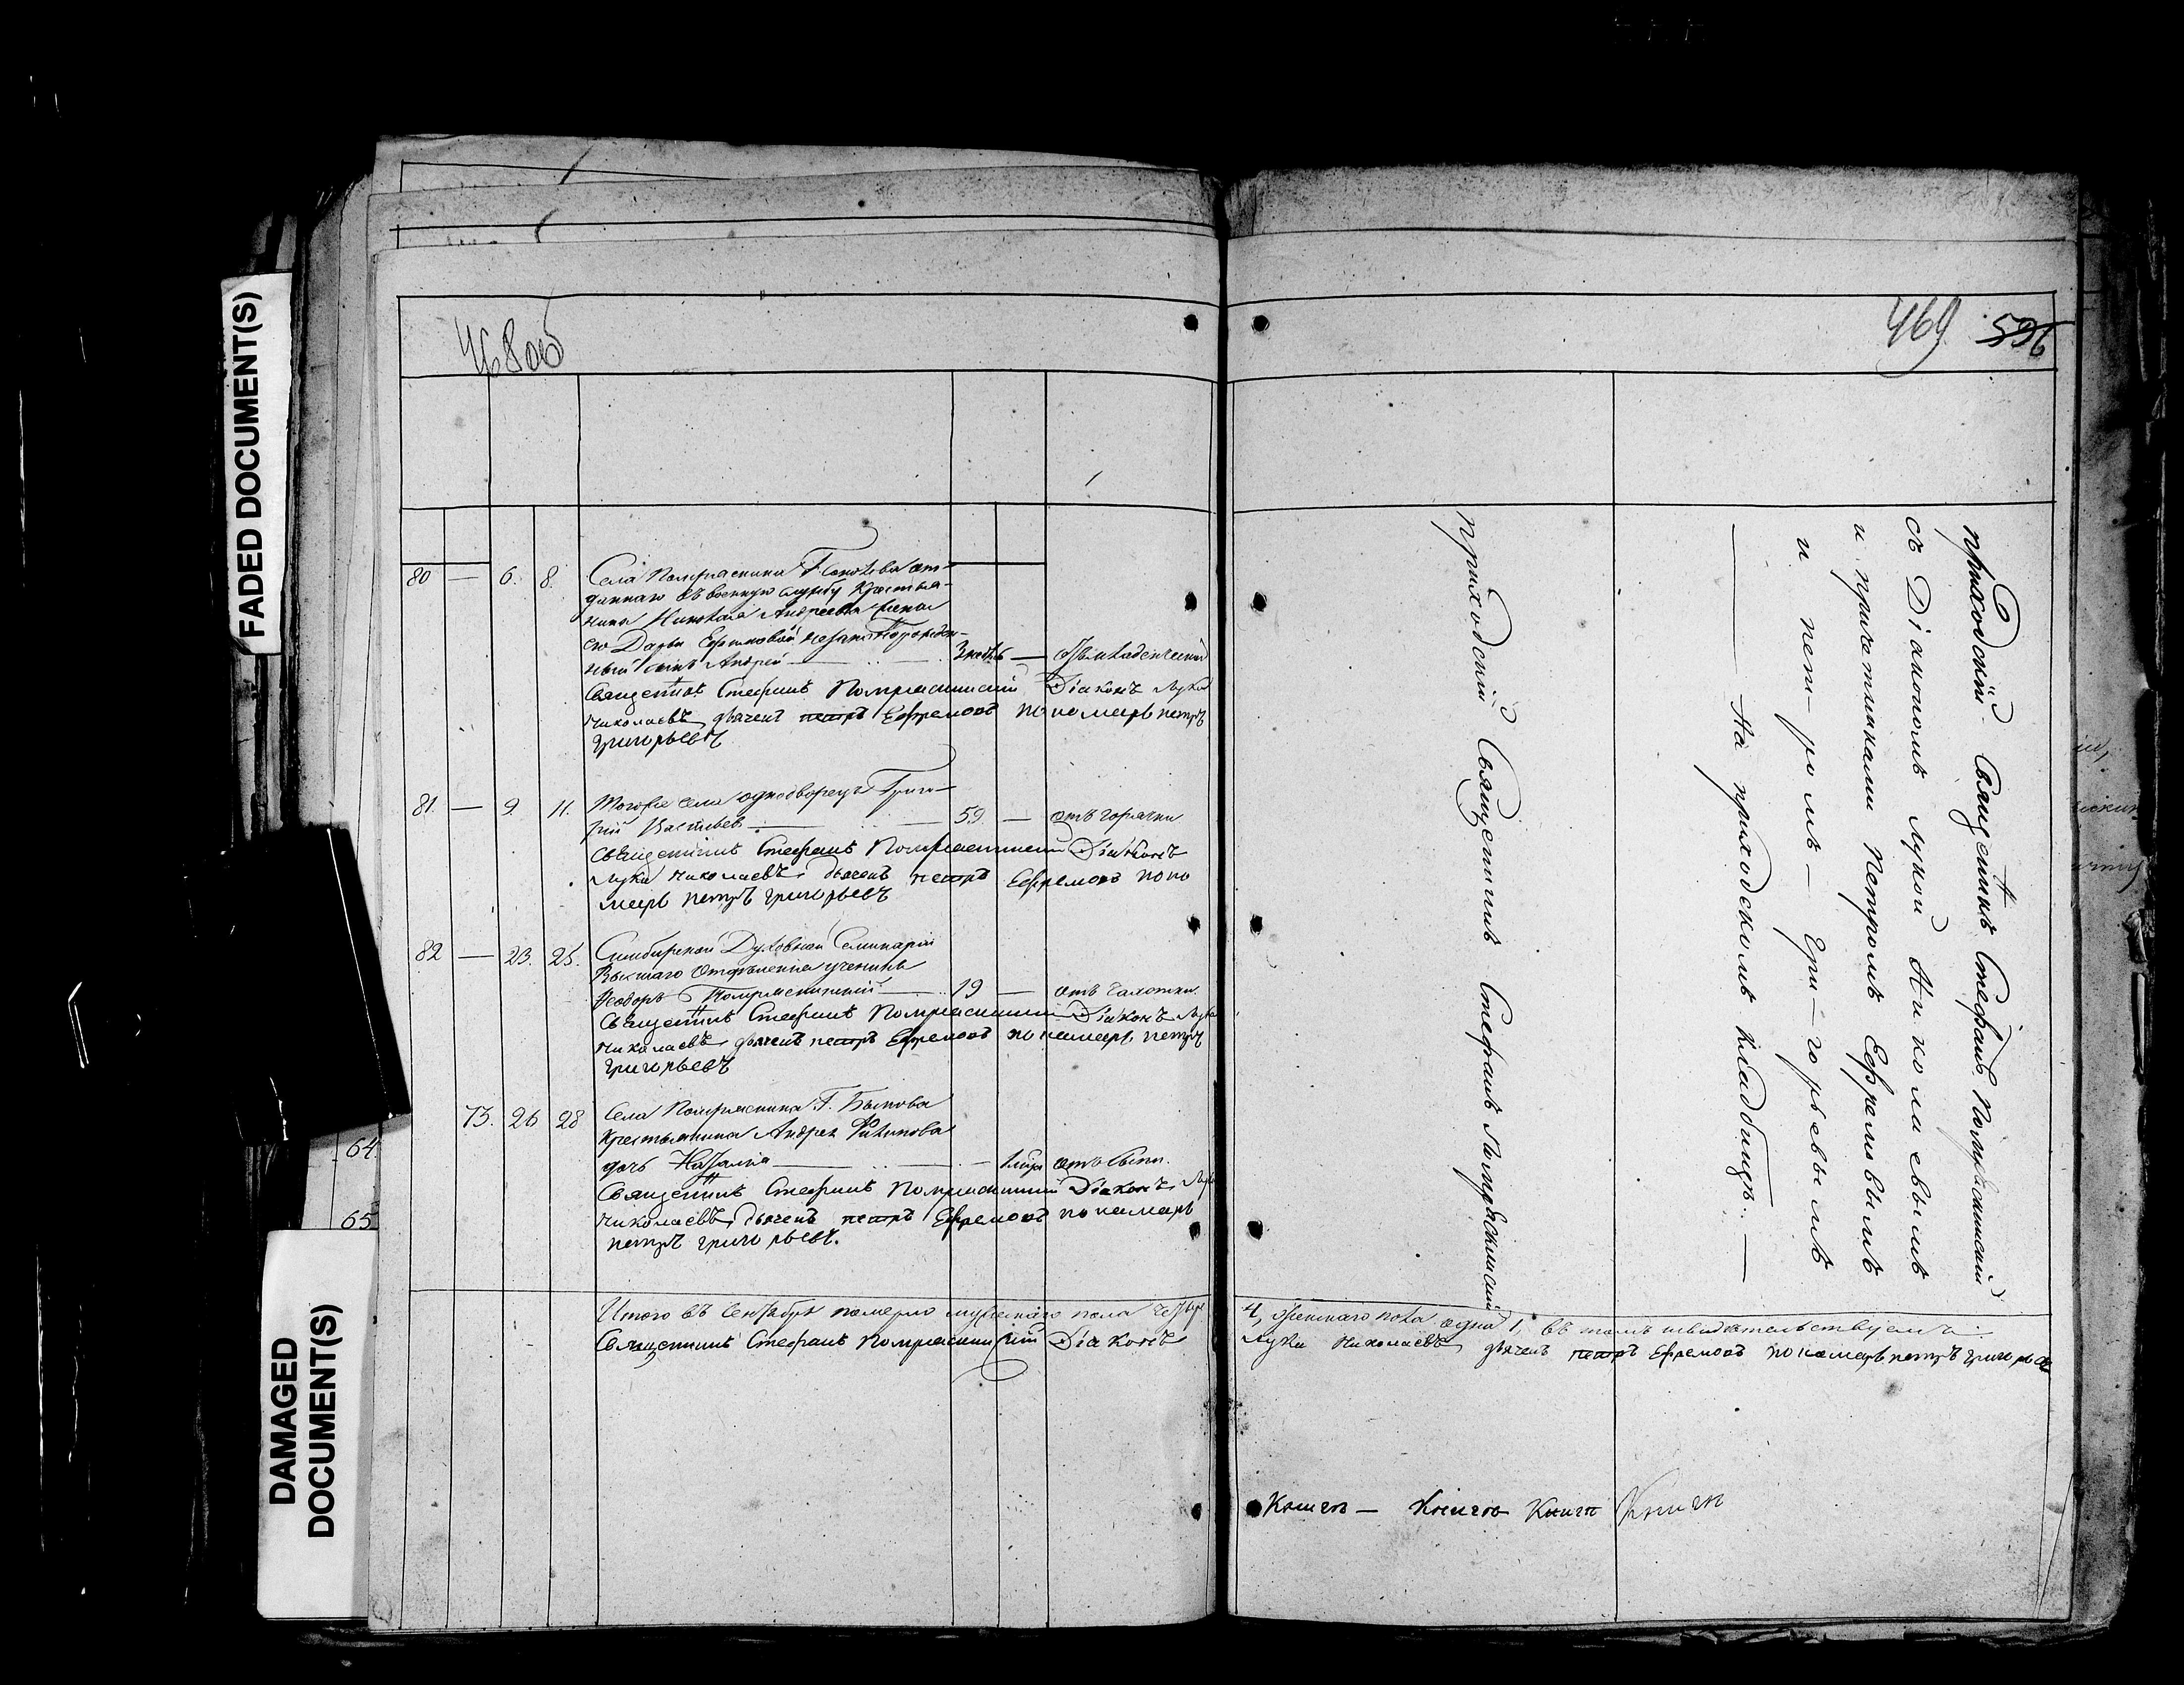 FADED DOCUMENT(S)
DAMAGED
DOCUMENT(S)
468 об
469 596
80 — 6. 8. Села Помряскина Г. отданнаго
въ военную службу Крестьянина
Николая Андреева жены
его Дарьи Ефимовой незаконнорожденный
сынъ Андрей — 3 — Младенческой
Священникъ Стефанъ Помряскинскій Діаконъ Лука
Николаевъ, дьячекъ петръ Ефремовъ пономарь петръ
григорьевъ
81. — 9. 11. Тогоже села однодворецъ Григорій
Васильев — 59. — отъ горячки
Священникъ Стефанъ Помряскинскій Діаконъ
Лука Николаевъ, дьячекъ петръ Ефремовъ поно
марь петръ григорьевъ
82 — 23. 25. Симбирской Духовной Семинаріи
Высшаго Отдѣленія ученикъ
Ѳеодоръ Помряскинскій — 19 — отъ чахотки.
Священникъ Стефанъ Помряскинскій Діаконъ Лука
Николаевъ, дьячекъ петръ Ефремовъ пономарь петръ
григорьевъ
73. 26 28 Села Помряскина Г. Быкова
Крестьянина Андрея Филипова
дочь Наталія — 1 отъ оспы.
Священникъ Стефанъ Помряскинскій Діаконъ Лука
Николаевъ, дьячекъ петръ Ефремовъ пономарь
петръ григорьевъ.
Итого въ Сентябрѣ померло мужескаго пола четыре
4, женскаго пола одна 1, въ томъ свидѣтельствуемъ.
Священникъ Стефанъ Помряскинскій Діаконъ
Лука Николаевъ, дьячекъ петръ Ефремовъ пономарь петръ григорьевъ
приходскій Священникъ Стефанъ Помряскинскій
приходскій Священникъ Стефанъ Помряскинскій
съ Діакономъ Лукой Николаевымъ
и причетниками Петромъ Ефремовымъ
и пет-ромъ — Гри-горьевымъ
— На приходскомъ кладбищѣ. —
64
65